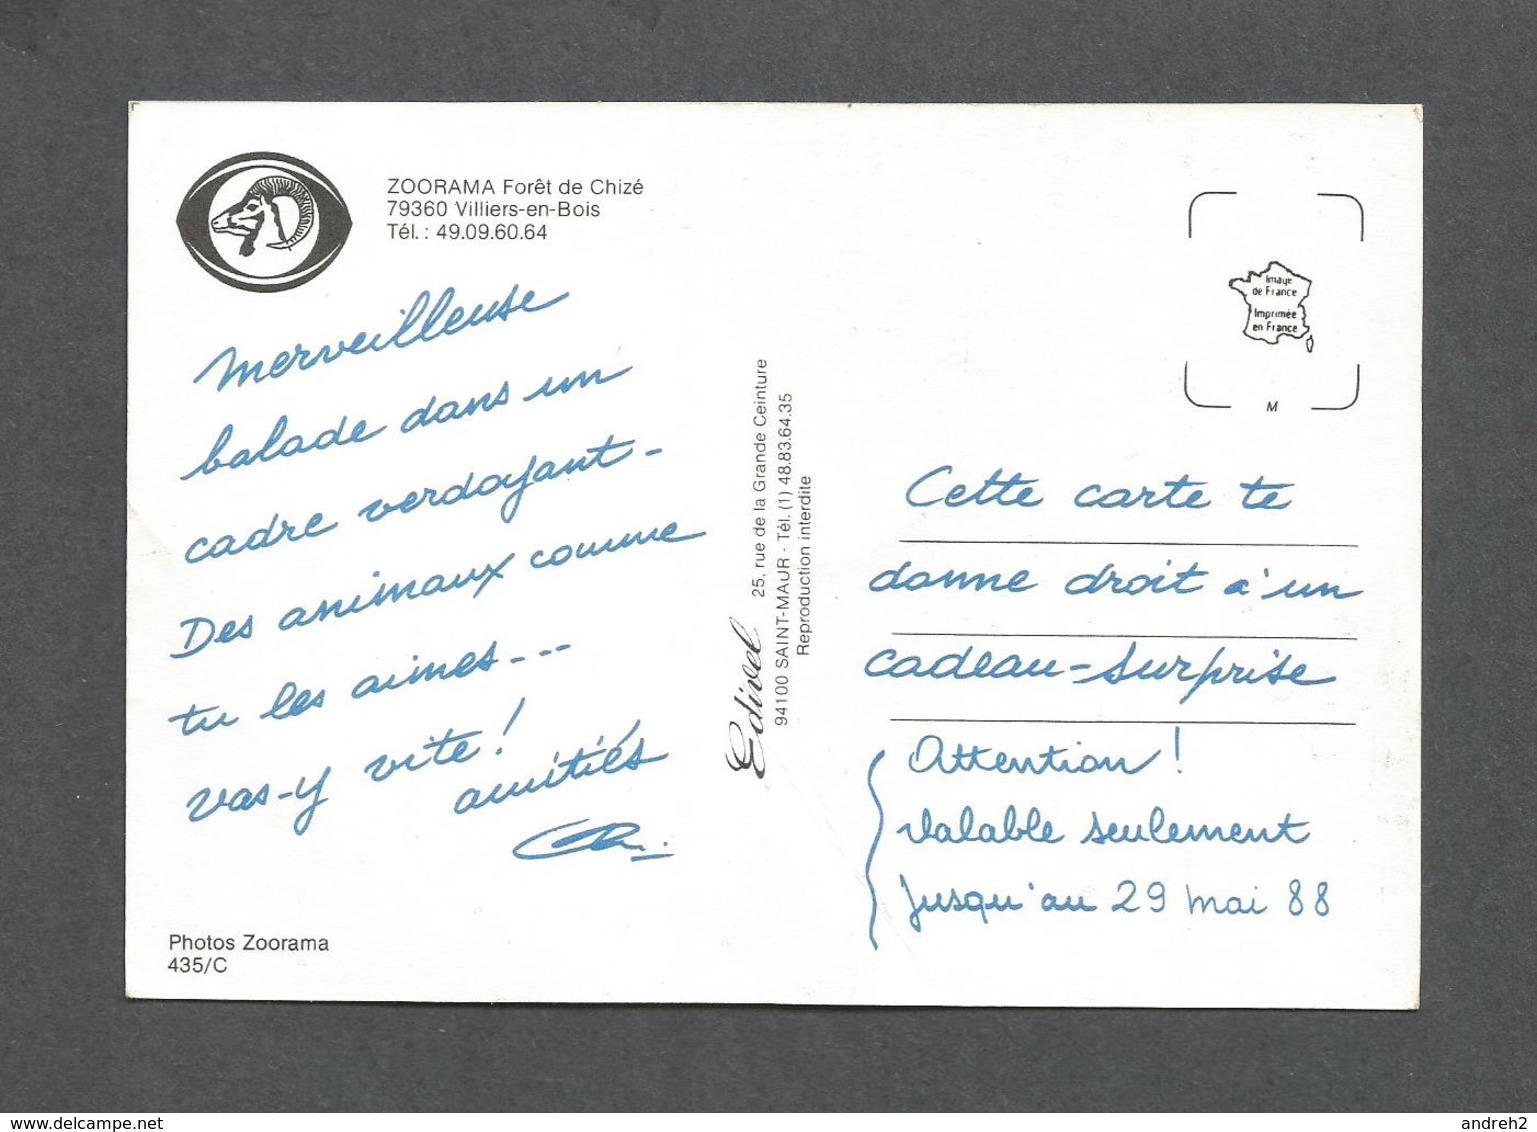 ZOORAMA Forêt de Chizé
79360 Villiers-en-Bois
Tél. : 49.09.60.64
Merveilleuse
balade dans un
cadre verdoyant -
Des animaux comme
tu les aimes ...
vas-y vite !
amitiés
Photos Zoorama
435/C
Edivel
25, rue de la Grande Ceinture
94100 SAINT-MAUR - Tél. (1) 48.83.64.35
Reproduction interdite
Image
de France
Imprimée
en France
M
Cette carte te
donne droit à un
cadeau-surprise
Attention !
Valable seulement
jusqu'au 29 mai 88
andreh2